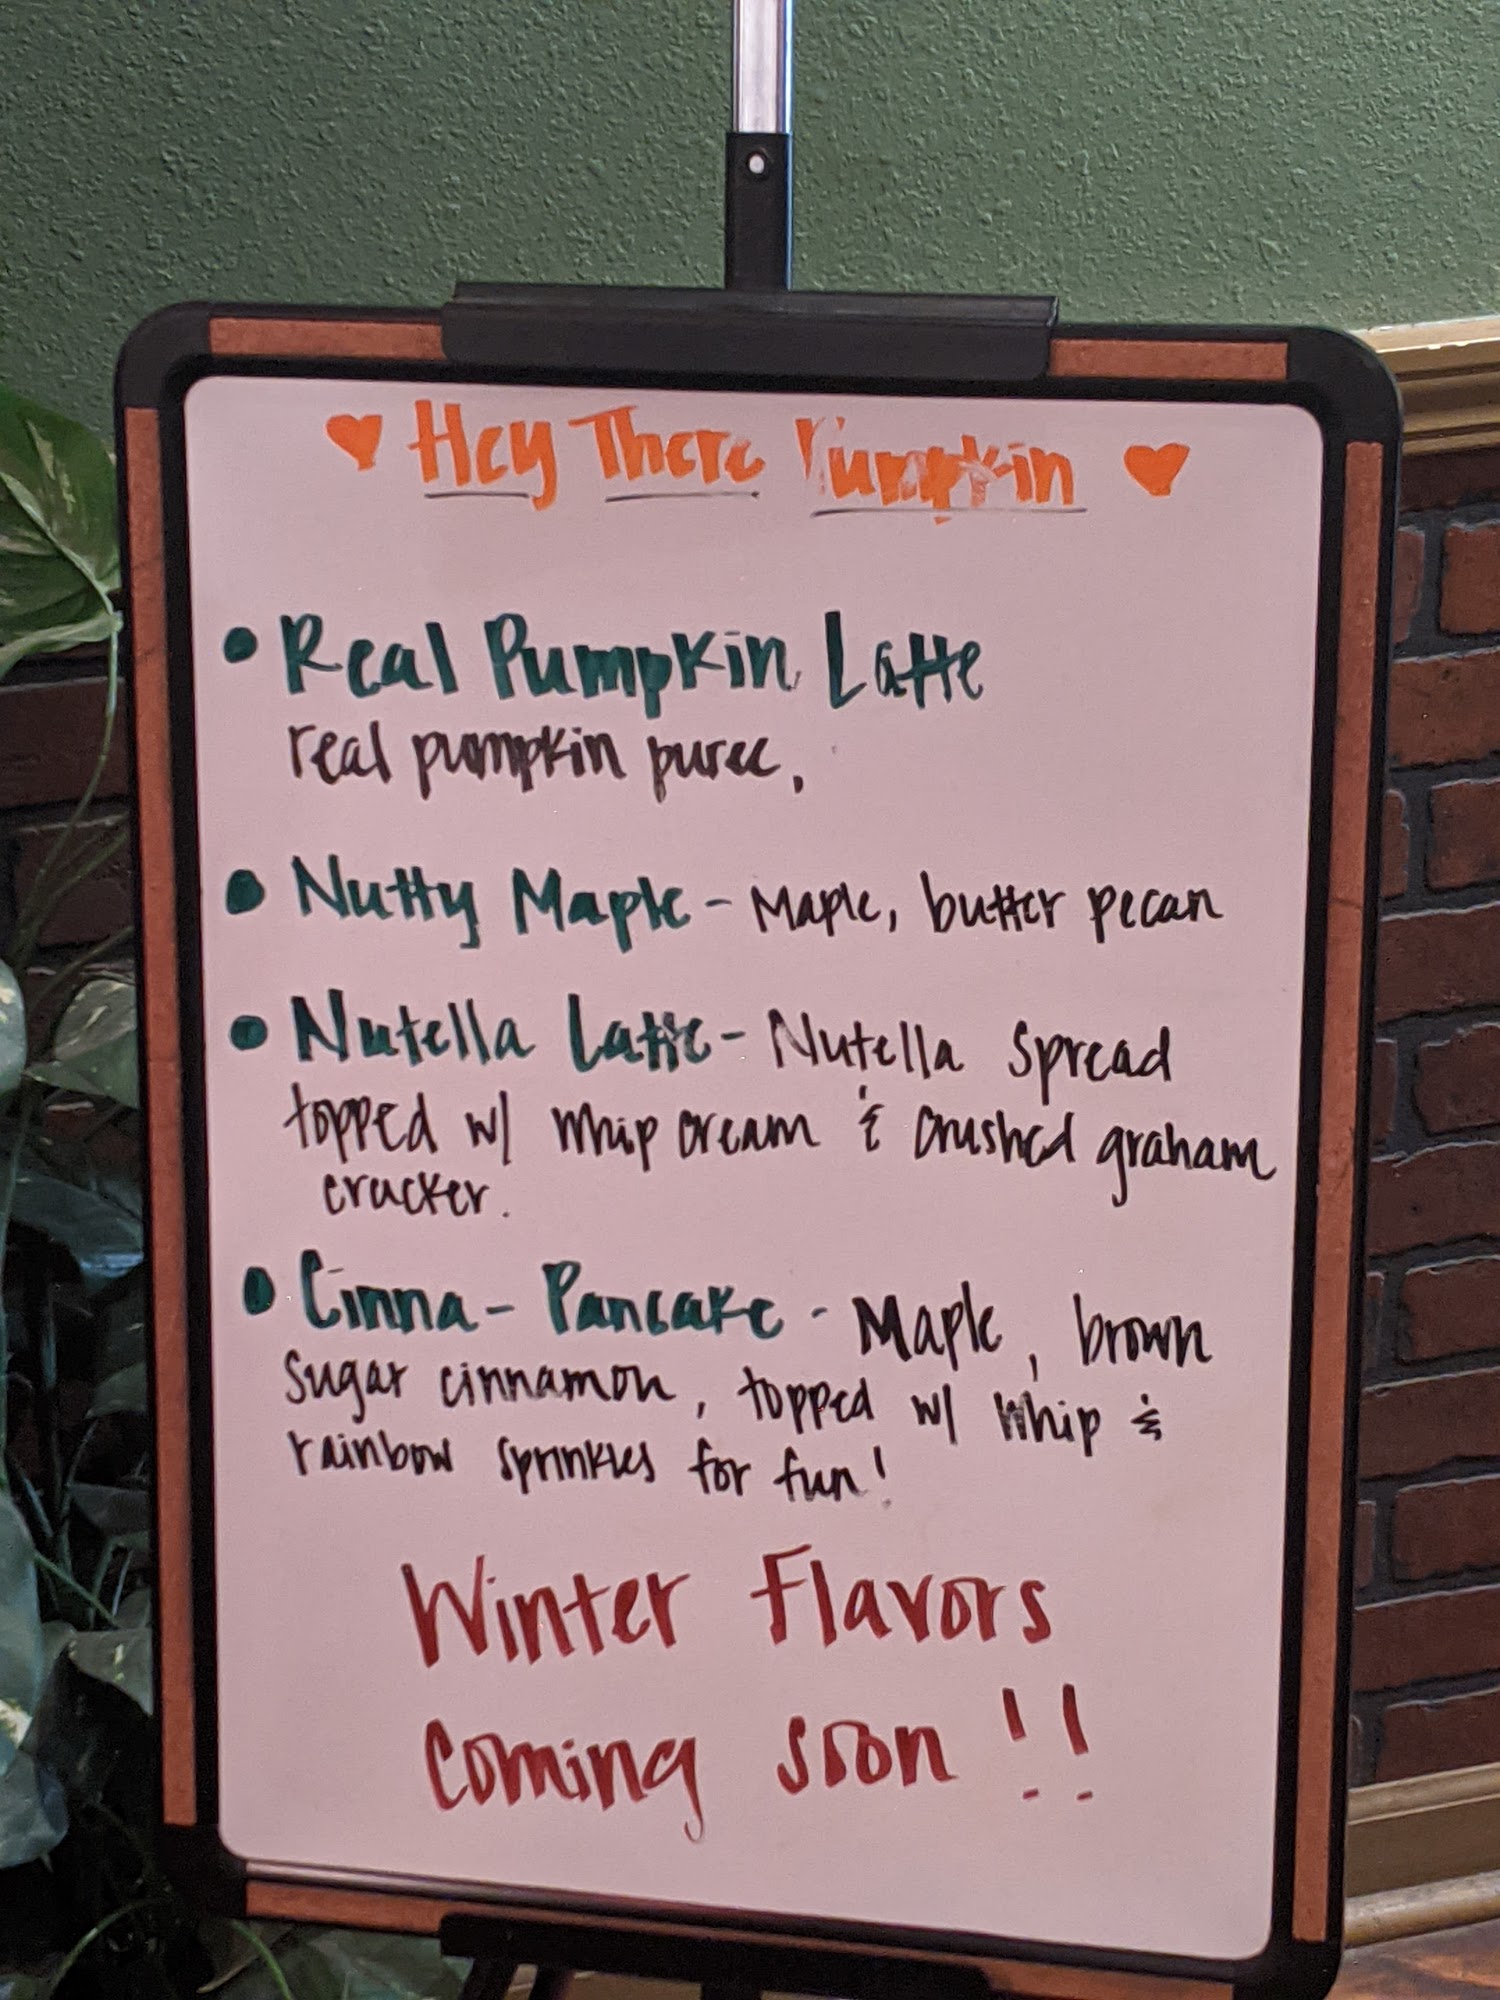 Hey There Pumpkin
• Real Pumpkin Latte
real pumpkin puree,
• Nutty Maple - Maple, butter pecan
• Nutella Latte - Nutella spread
topped w/ whip cream & crushed graham
cracker.
• Cinna - Pancake - Maple, brown
sugar cinnamon, topped w/ whip &
rainbow sprinkles for fun!
Winter Flavors
coming soon!!